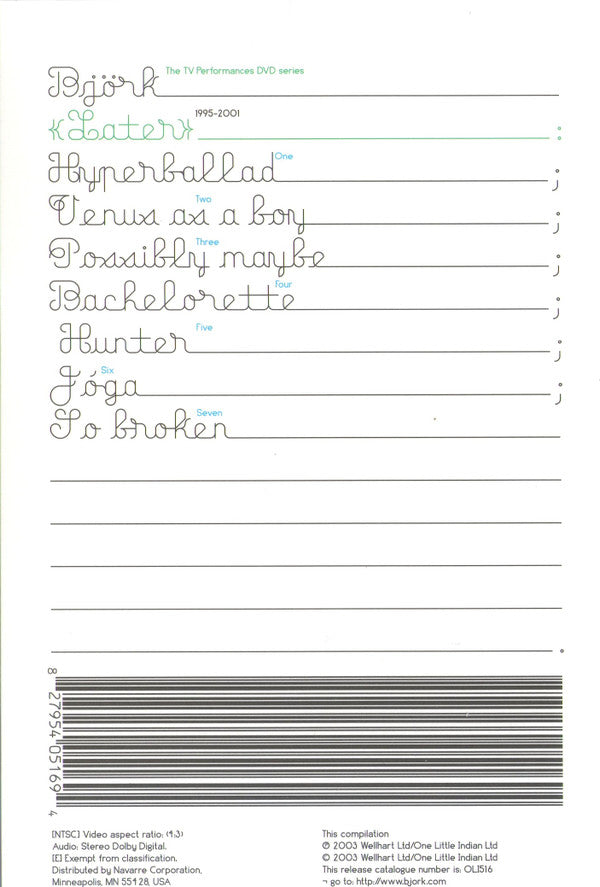 Björk The TV Performances DVD series
«Later» 1995-2001 :
Hyperballad One ;
Venus as a boy Two ;
Possibly maybe Three ;
Bachelorette Four ;
Hunter Five ;
Jóga Six ;
So broken Seven
.
8 27954 05169 4
[NTSC] Video aspect ratio: (4:3)
Audio: Stereo Dolby Digital.
[E] Exempt from classification.
Distributed by Navarre Corporation,
Minneapolis, MN 55428, USA
This compilation
℗ 2003 Wellhart Ltd/One Little Indian Ltd
© 2003 Wellhart Ltd/One Little Indian Ltd
This release catalogue number is: OLI516
¬ go to: http://www.bjork.com